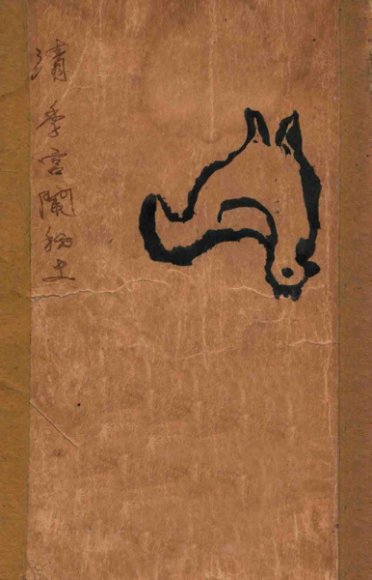 清季宮闈秘史